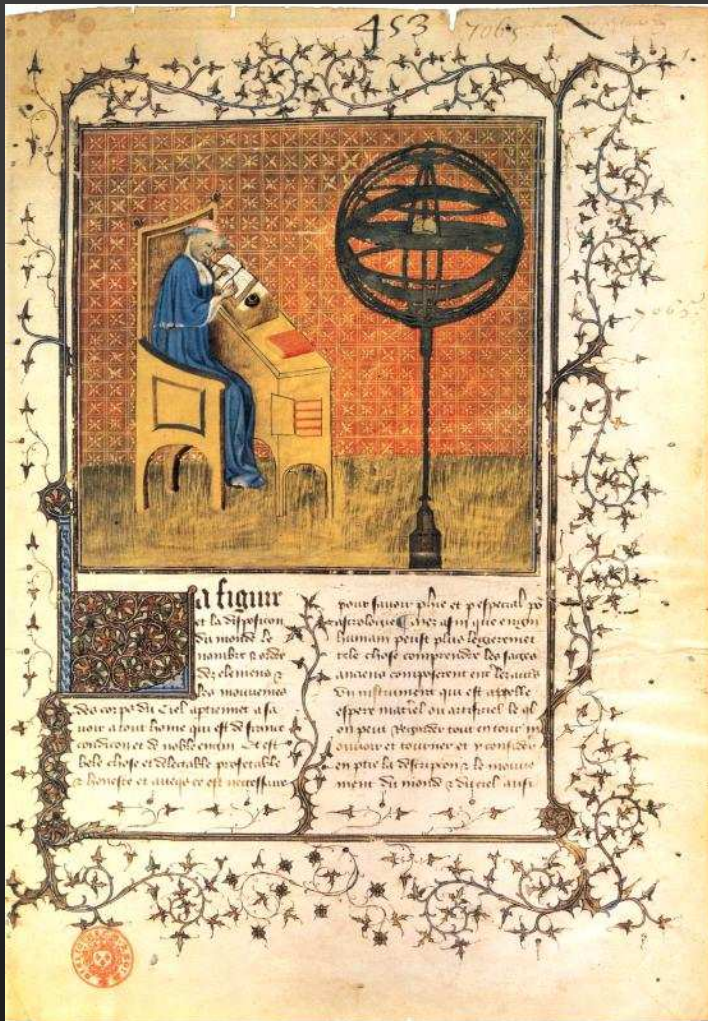 453
7065
7065
La figure
et la disposicon
du monde le
nombre & ordre
dez elemens &
les mouvemens
des corps du ciel aptiennet a sa
voir a tout home qui est de france
condicion et de noble engin Et est
bele chose et delectable profetable
& honeste et avecqs ce est necessaire
pour savoir phie et p especial po
astrologie
humain peust plus legierement
tele chose comprendre les sages
anciens composerent entre les autres
Un instrument qui est appelle
espere materiel ou artificiel le ql
on peut Regarder tout en tour
mouvoir et tourner et y considerer
en ptie la descripcion & le mouve
ment du monde & du ciel ausi